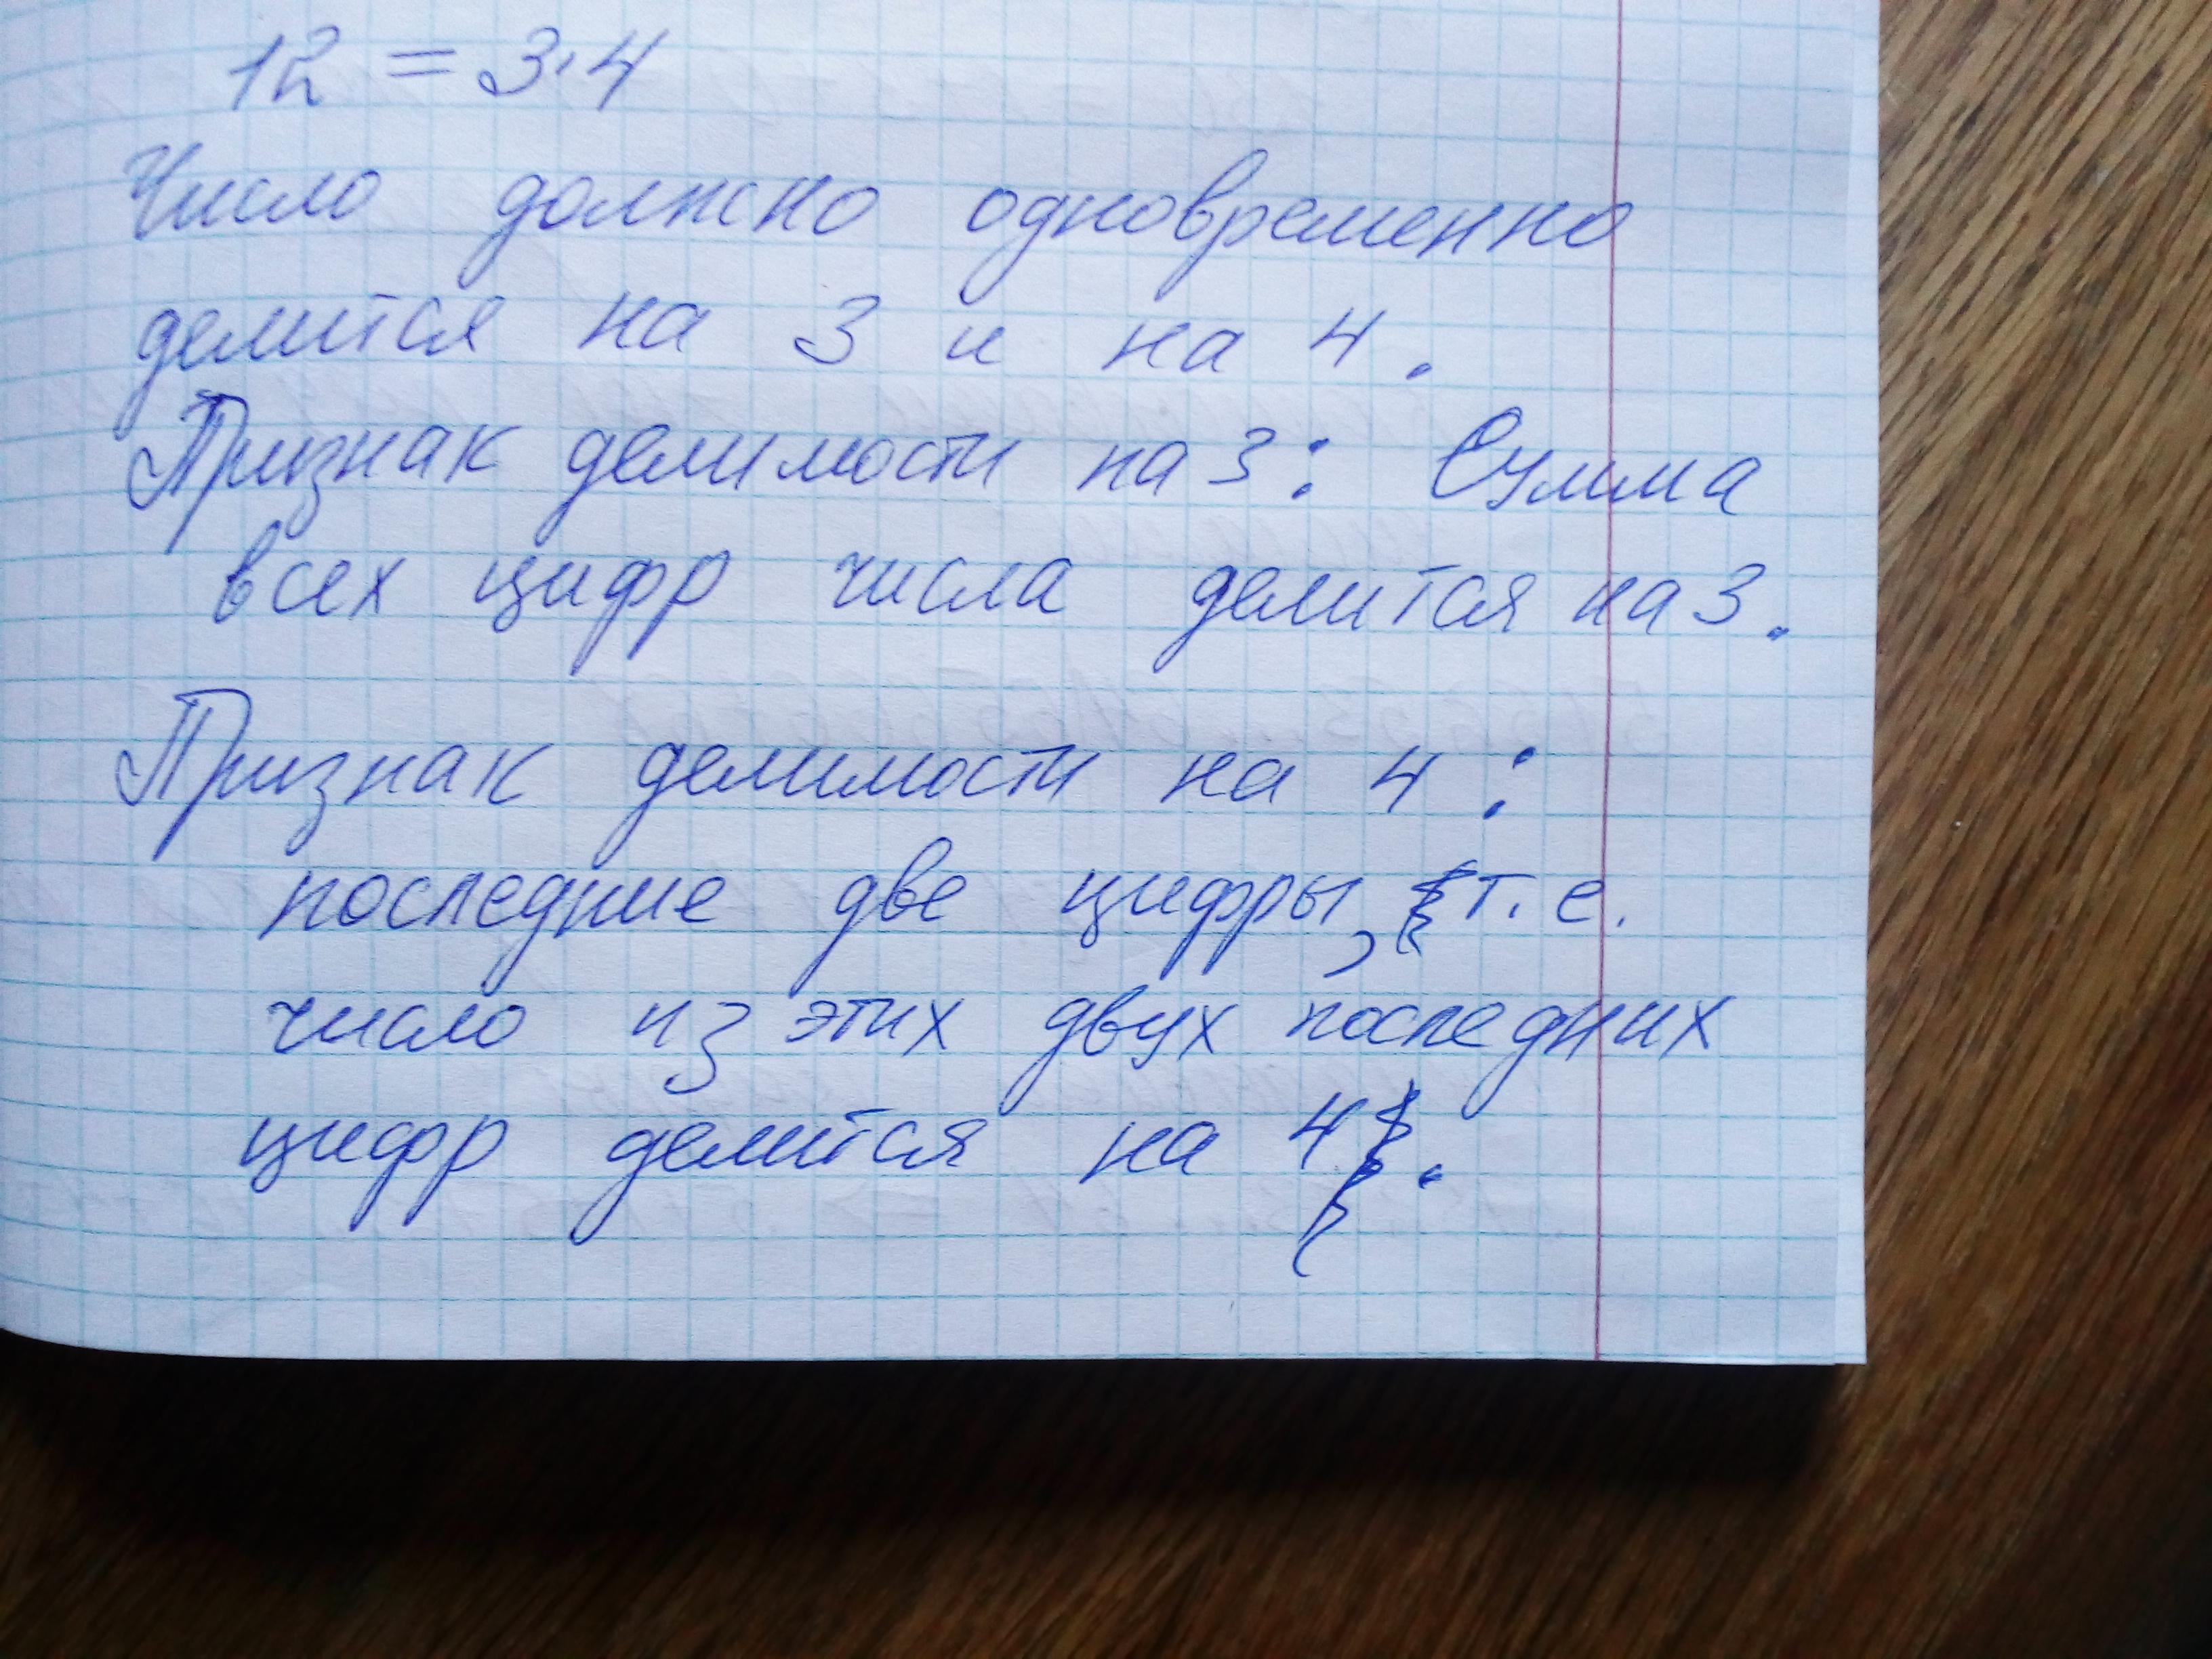 12 = 3·4
Число должно одновременно
делится на 3 и на 4.
Признак делимости на 3: Сумма
всех цифр числа делится на 3.
Признак делимости на 4:
последние две цифры, т.е.
число из этих двух последних
цифр делится на 4.